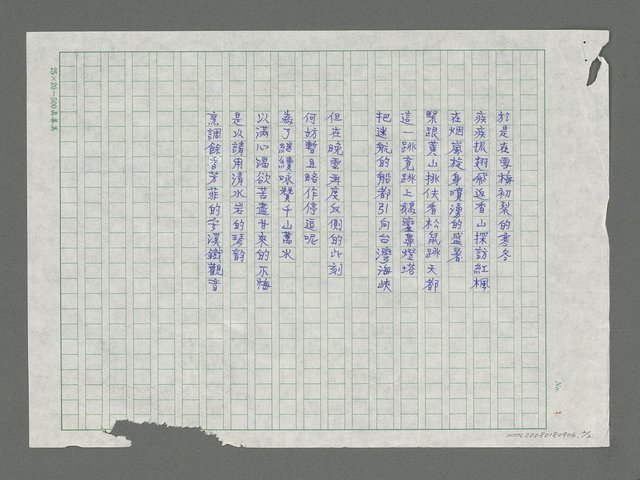 於是在雪梅初裂的寒冬
疾疾振翅飛返香山探訪紅楓
在烟嵐旋身噴湧的盛暑
緊跟黃山挑伕看松鼠跳天都
這一跳竟跳上鵝鑾鼻燈塔
把迷航的船都引向台灣海峽
但在晚雲再度反側的此刻
何妨暫且略作停逗呢
為了繼續咏贊千山萬水
以滿心渴欲苦盡甘來的不悔
是以請用清水岩的
烹調餘香芳菲的字溪鐵觀音
25×20=500
No.
NMTL20080180906